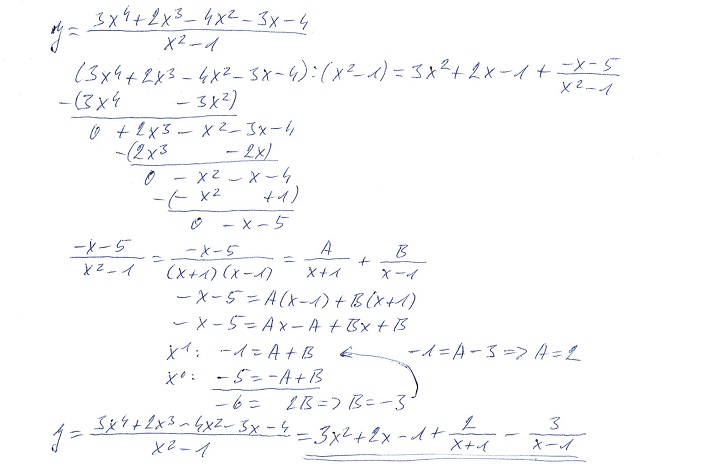 y = (3x⁴+2x³-4x²-3x-4)/(x²-1)
(3x⁴+2x³-4x²-3x-4):(x²-1)=3x²+2x-1+(-x-5)/(x²-1)
-(3x⁴ -3x²)
0 +2x³-x²-3x-4
-(2x³ -2x)
0 -x²-x-4
-(-x² +1)
0 -x-5
(-x-5)/(x²-1) = (-x-5)/((x+1)(x-1)) = A/(x+1) + B/(x-1)
-x-5=A(x-1)+B(x+1)
-x-5=Ax-A+Bx+B
x¹: -1=A+B -1=A-3=>A=2
x⁰: -5=-A+B
-6= 2B=>B=-3
y = (3x⁴+2x³-4x²-3x-4)/(x²-1) = 3x²+2x-1+2/(x+1)-3/(x-1)